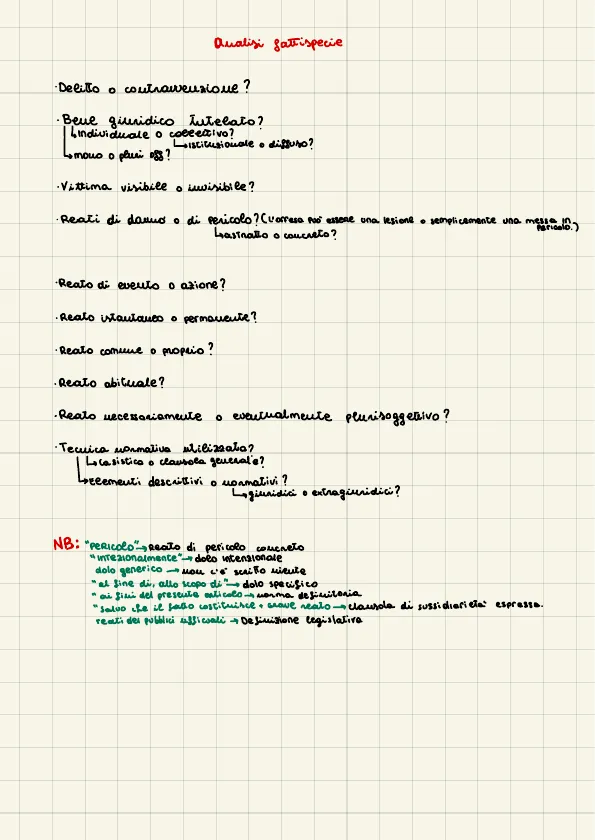 Analisi fattispecie
·Delitto o contravvenzione?
·Bene giuridico tutelato?
↳Individuale o collettivo?
↳istituzionale o diffuso?
↳mono o pluri off?
·Vittima visibile o invisibile?
·Reati di danno o di pericolo? (L'offesa può essere una lesione o semplicemente una messa in pericolo.)
↳astratto o concreto?
·Reato di evento o azione?
·Reato istantaneo o permanente?
·Reato comune o proprio?
·Reato abituale?
·Reato necessariamente o eventualmente plurisoggettivo?
·Tecnica normativa utilizzata?
↳Casistica o clausola generale?
↳Elementi descrittivi o normativi?
↳giuridici o extragiuridici?
NB: "PERICOLO"→Reato di pericolo concreto
"intezionalmente"→dolo intenzionale
dolo generico → non c'è scritto niente
"al fine di, allo scopo di"→ dolo specifico
"ai fini del presente articolo→norma definitoria
"salvo che il fatto costituisce + grave reato → clausola di sussidiarietà espressa.
reati dei pubblici ufficiali → Definizione legislativa